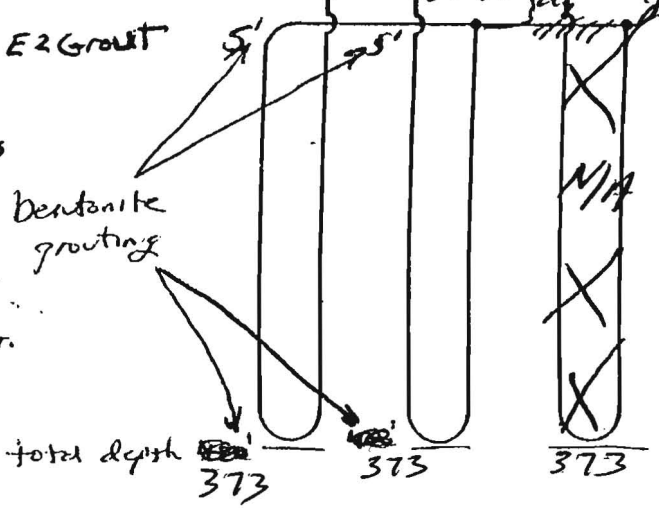 E2 Grout
5'
5'
bentonite
grouting
N/A
total depth
373
373
373